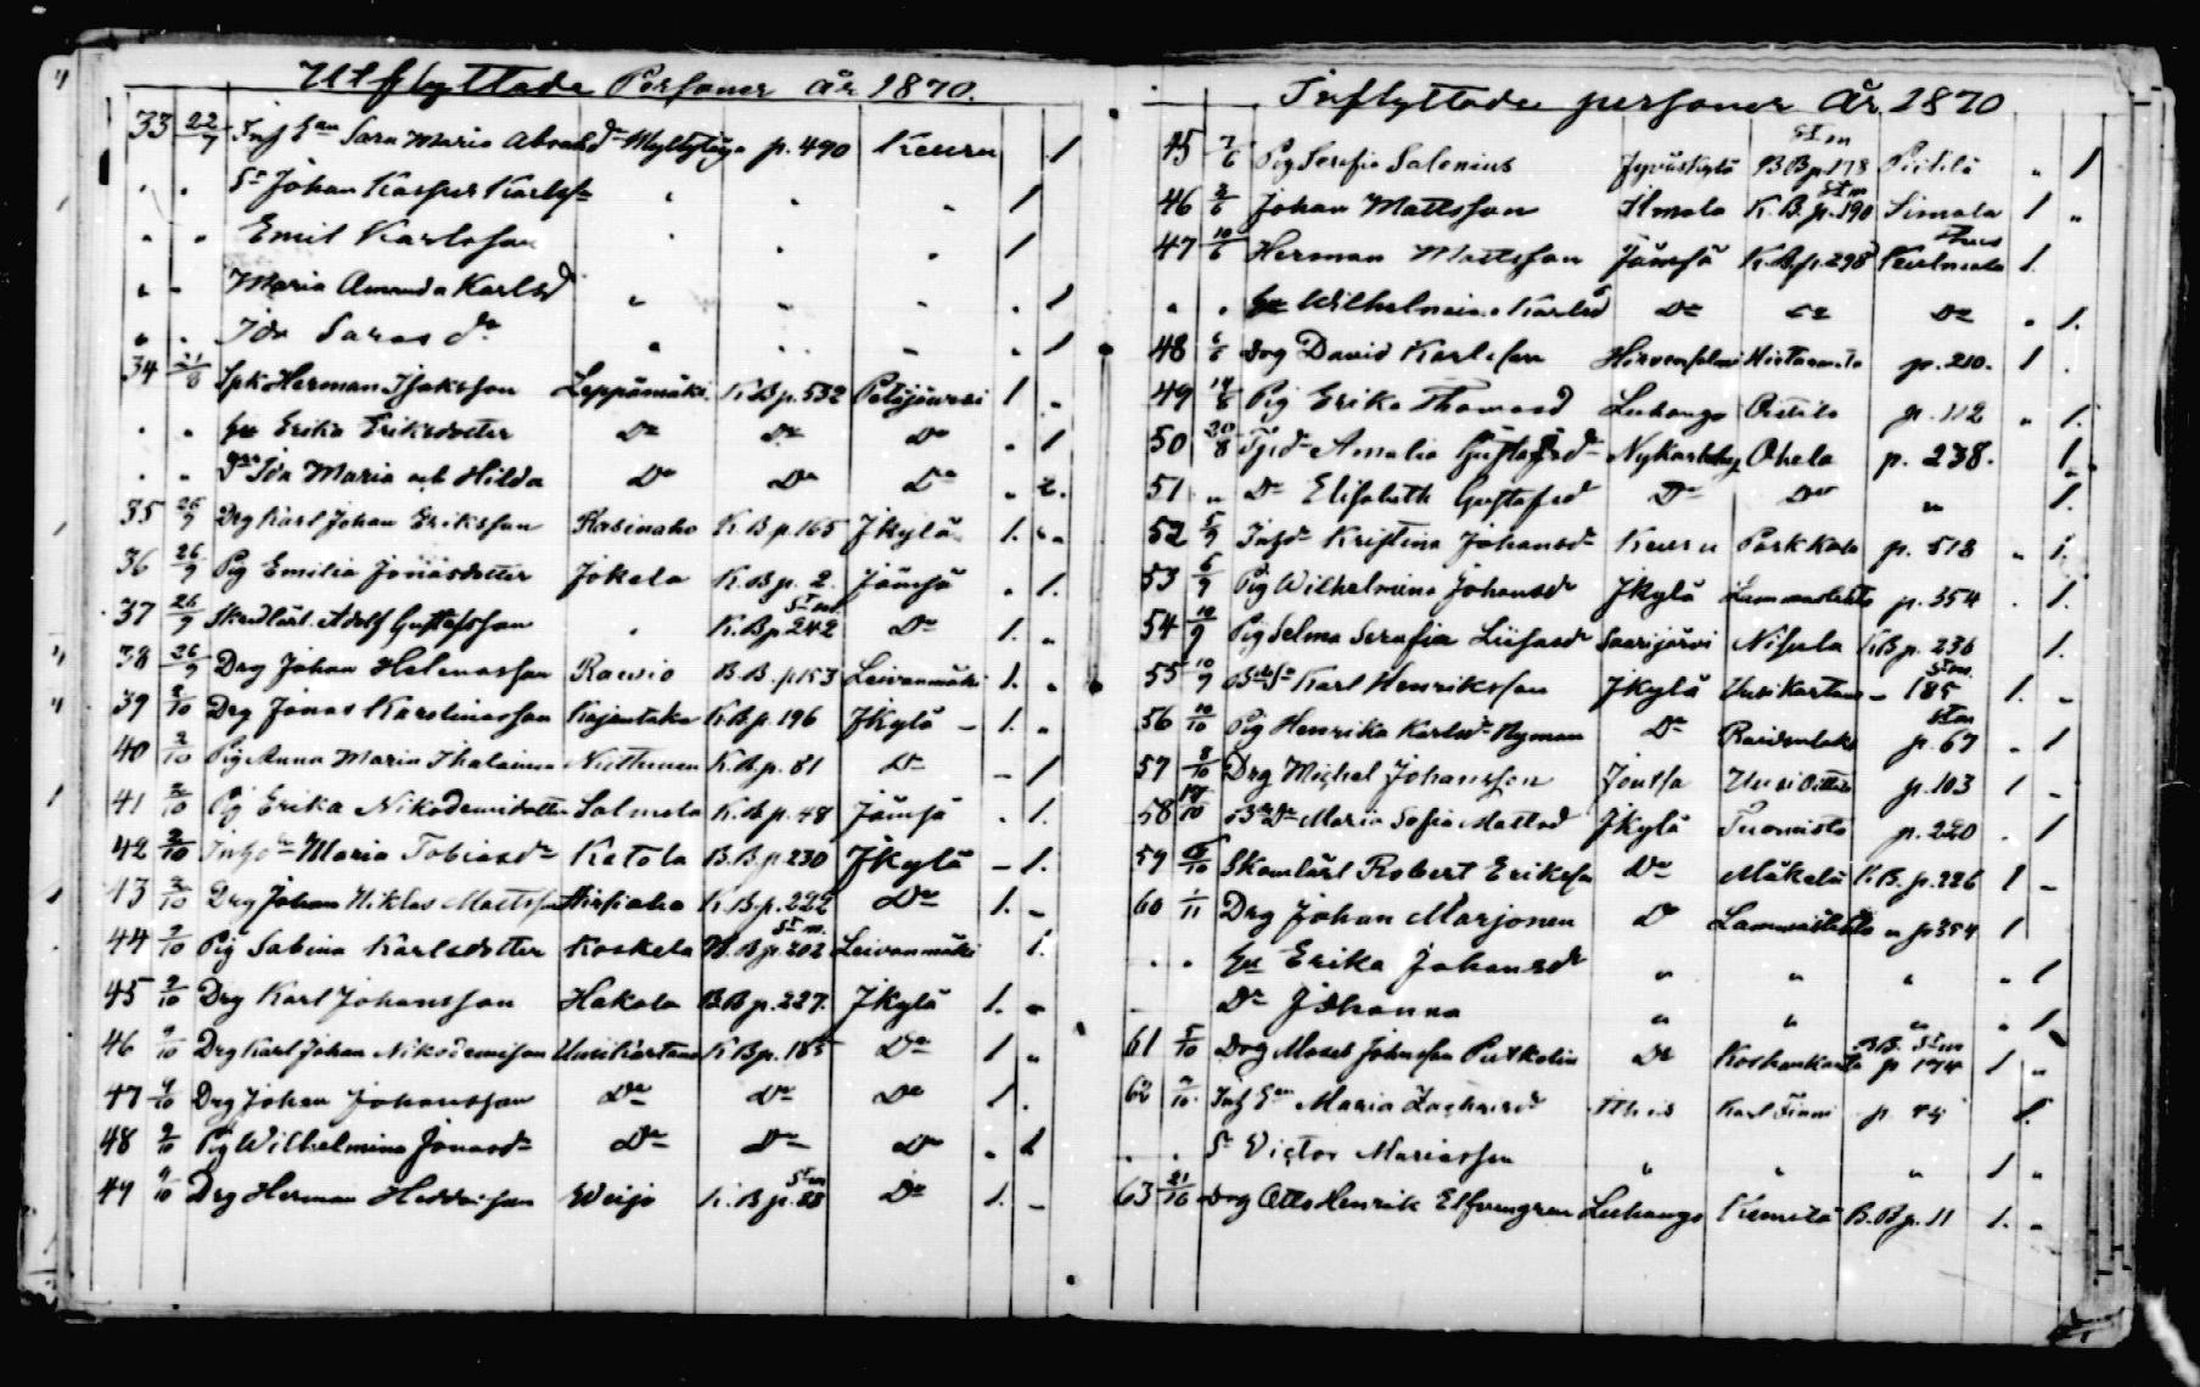 Utflyttade Personer år 1870.
33 22/7 Inh Sara Maria Abrahd Myllylä p. 490 Keuru 1
" " Sn Johan Kasper Karlsn " " " 1
" " Emil Karlsson " " " 1
" " Maria Amanda Karlsd " " " " 1
" " Ida Saras dr " " " " 1
34 21/8 Spk Herman Isaksson Leppämäki K.B p. 532 Petäjäwesi 1 "
" " Hu Erika Eriksdotter Do Do Do " 1
" " Ida Maria och Hilda Do Do Do " 2.
35 26/9 Drg Karl Johan Eriksson Kasinaho K.B p. 165 Jkylä 1. "
36 26/9 Pig Emilia Jonasdotter Jokela K.B p. 2. Jämsä " 1.
37 26/9 Adolf Gustafsson " K.B p 242 Do 1. "
38 26/9 Drg Johan Helenasson Rawio B.B. p 153 Leivonmäki 1. "
39 2/10 Drg Jonas Karolinasson Kajantaka K.B. p. 196 Jkylä - 1. "
40 2/10 Pig Anna Maria Ihalainen Niittunen K.B. p. 81 Do - 1
41 2/10 Pig Erika Nikodemidotter Salmela K.B p. 48 Jämsä " 1.
42 2/10 Maria Tobiasdr Ketola B.B. p 230 Jkylä - 1.
43 2/10 Drg Johan Niklas Mattsson Hirsiaho K.B. p. 222 Do 1. -
44 2/10 Pig Sabina Karlsdotter Koskela B p. 202 Leivonmäki 1.
45 9/10 Drg Karl Johansson Hakala B.B p. 227. Jkylä 1. "
46 9/10 Drg Karl Johan Nikodemisson Uusikartano K.B p. 185 Do 1 "
47 9/10 Drg Johan Johansson Do Do Do 1.
48 9/10 Pig Wilhelmina Jonasdr Do Do Do " 1
49 9/10 Drg Herman Weijo K.B p. 88 Do 1. -
Inflyttade personer År 1870
45 7/6 Pig Serafia Salenius Jyväskylä BB p 178 Piitilä " 1
46 Johan Mattsson Ilmola K.B. p. 190 Simola 1 "
47 10/6 Herman Mattsson Jämsä K.B. p. 298 1.
" " Hu Wilhelmina Karlsd Do Do Do " 1.
48 Drg David Karlsson Hirvensalmi p. 210. 1
49 Pig Erika Thomasd Luhango Oittila p. 112 " 1.
50 20/8 Amalia Gustafsdr Nykarleby Ohela p. 238. 1
51 " Do Elisabeth Gustafsd Do Do " 1.
52 5/9 Kristina Johansdr Keuru Parkkola p. 518 " 1.
53 6/9 Pig Wilhelmina Johansdr Jkylä Lammaslehto p. 354 . 1.
54 10/9 Pig Selma Serafia Liisasdr Saarijärvi Nisula KB p. 236 1.
55 10/9 Karl Henriksson Jkylä Uusikartano - 185 1. -
56 10/10 Pig Henrika Karlsdr Nyman Do p. 67 " 1
57 8/10 Drg Michel Johansson Joutsa Uusi Oittila p. 103 1 -
58 17/10 Maria Sofia Mattsd Jkylä Tuomisto p. 220 . 1
59 Skomlärl Robert Eriksn Do Mäkelä K.B. p. 226 1 -
60 1/11 Drg Johan Marjonen Do Lammaslehto p 354 1
" " Hu Erika Johansdr " " " " 1
Dr Johanna " " " " 1
61 5/10 Drg Moses Johnsson Do p 174 1 "
62 Maria Karl p. 1.
" " Sn Victor Mariasson " " " 1 "
63 21/10 Drg Otto Henrik Elfvengren Luhango B.B p. 11 1. "